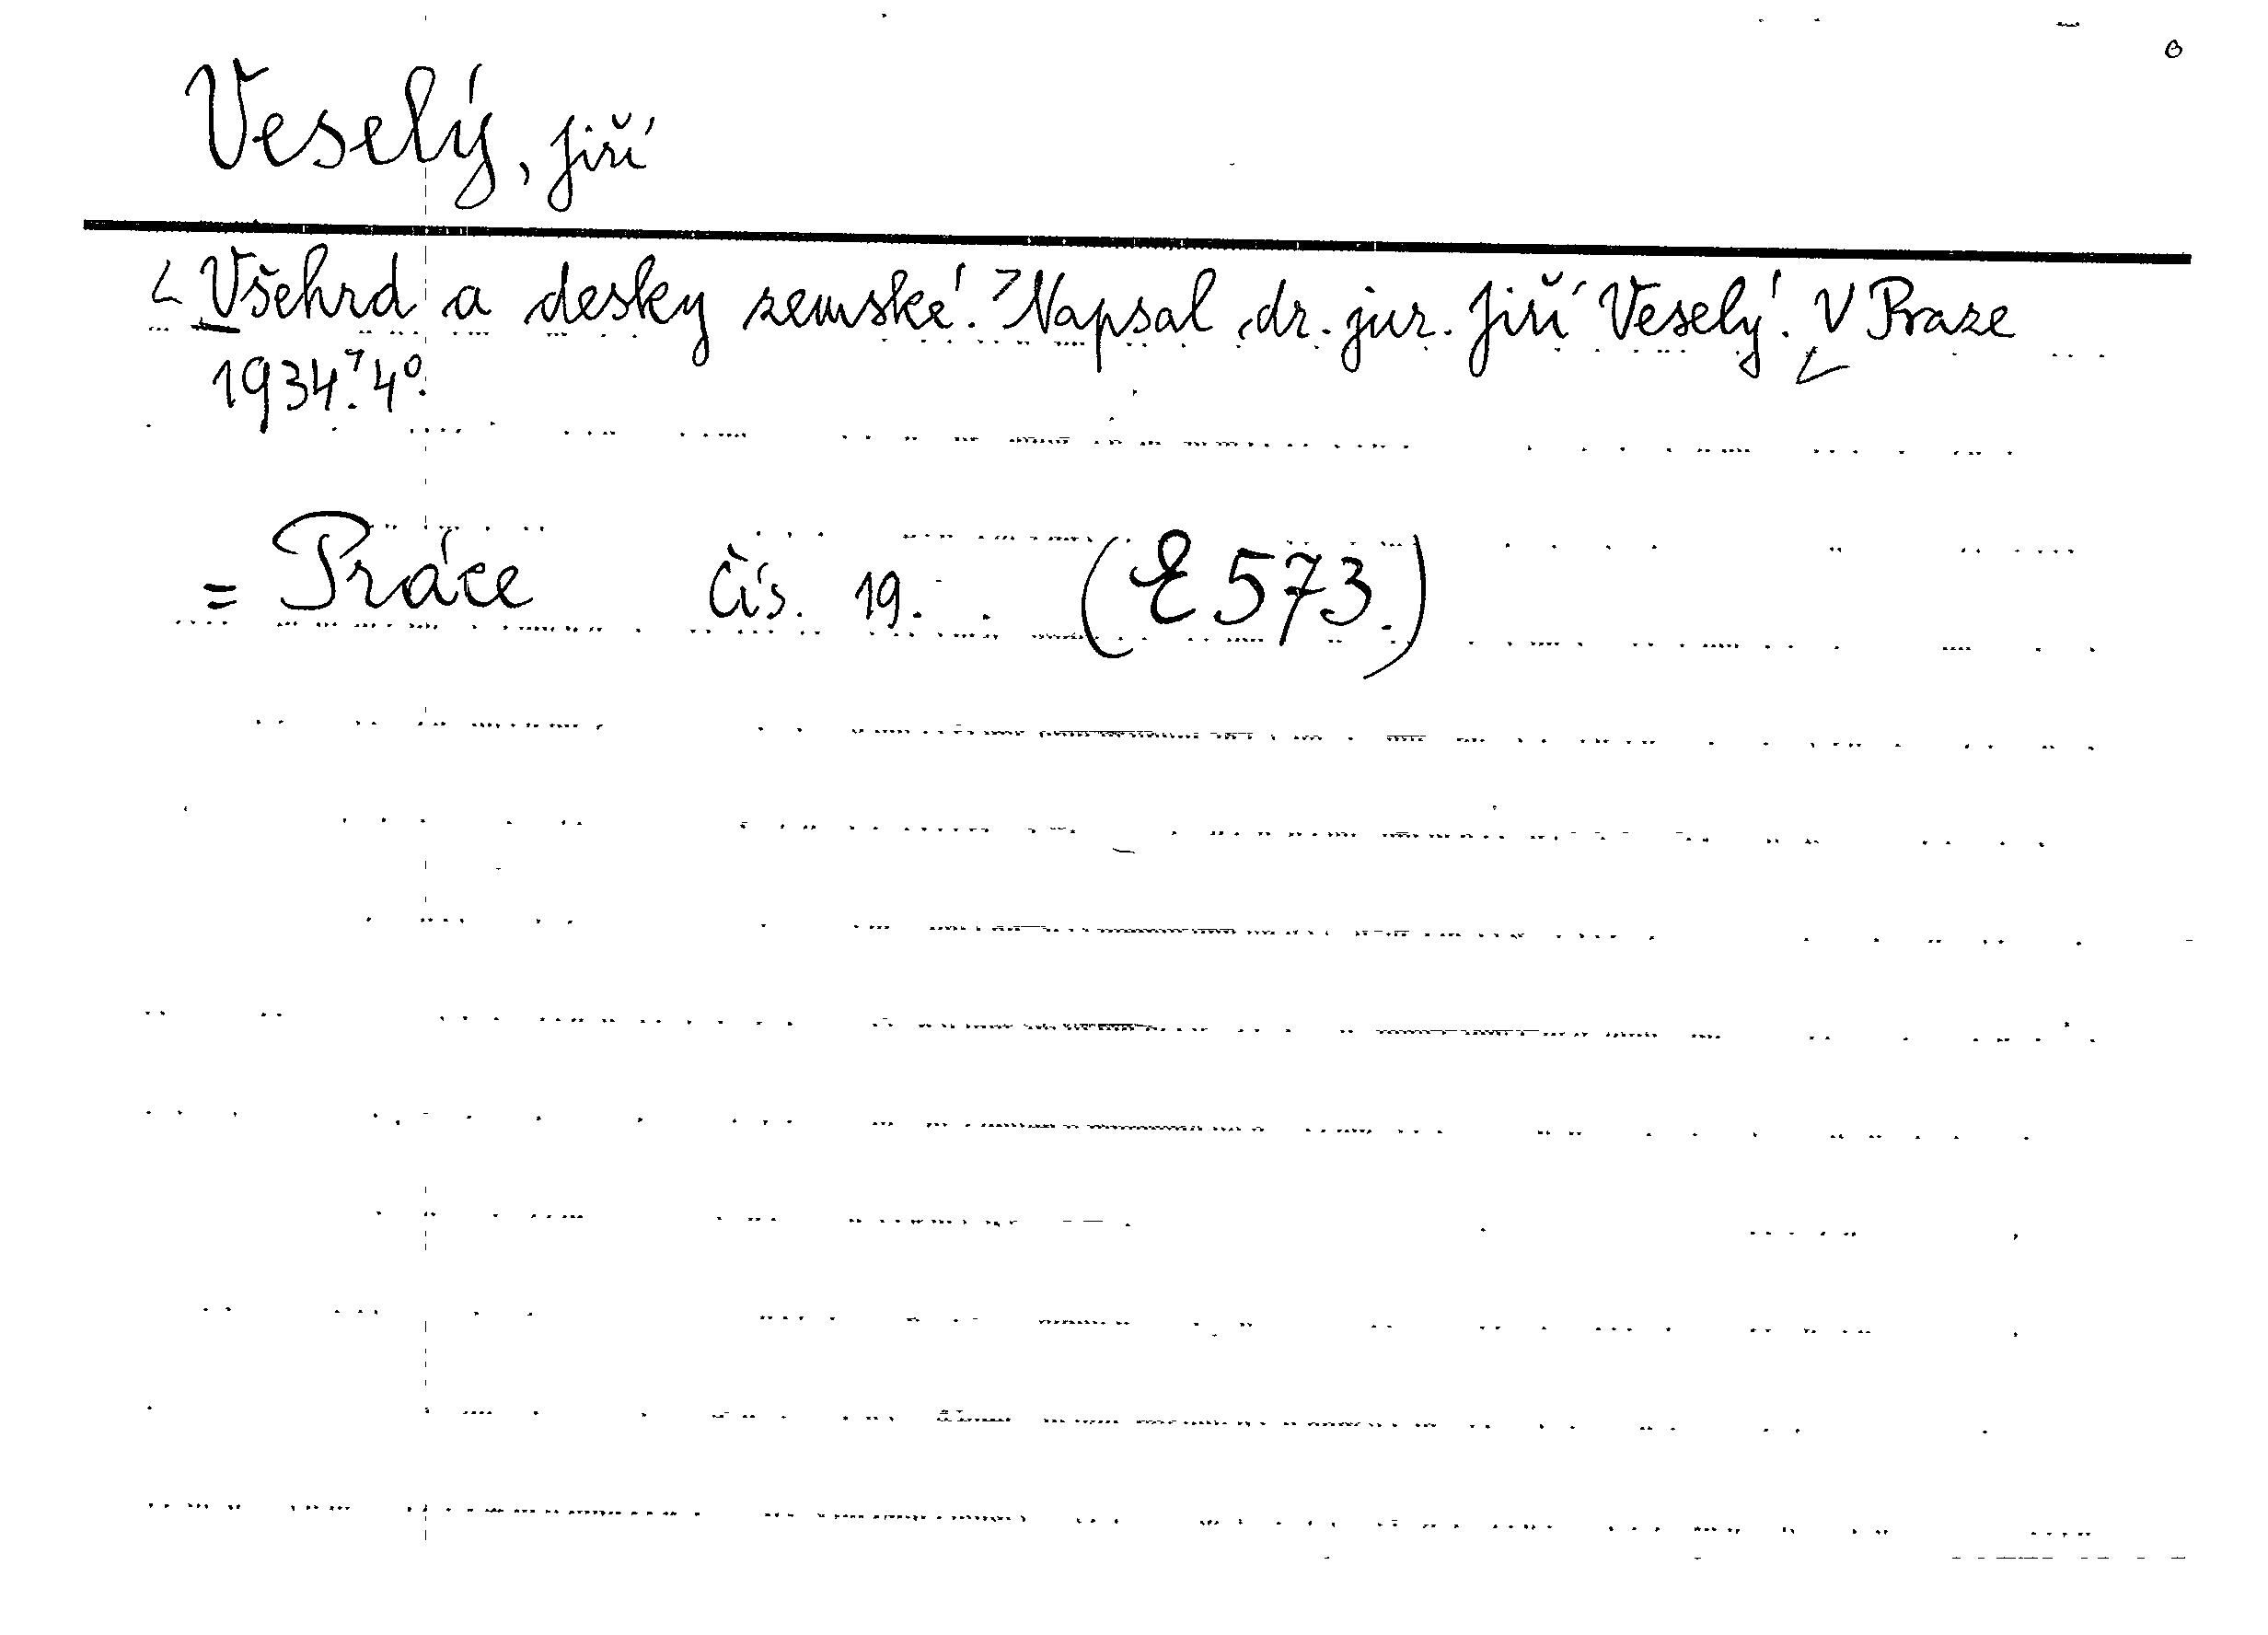 Veselý, Jiří
< Všehrd a desky zemské. > Napsal dr. jur. Jiří Veselý. < V Praze
1934. > 4°.
= Práce čís. 19. (E 573.)